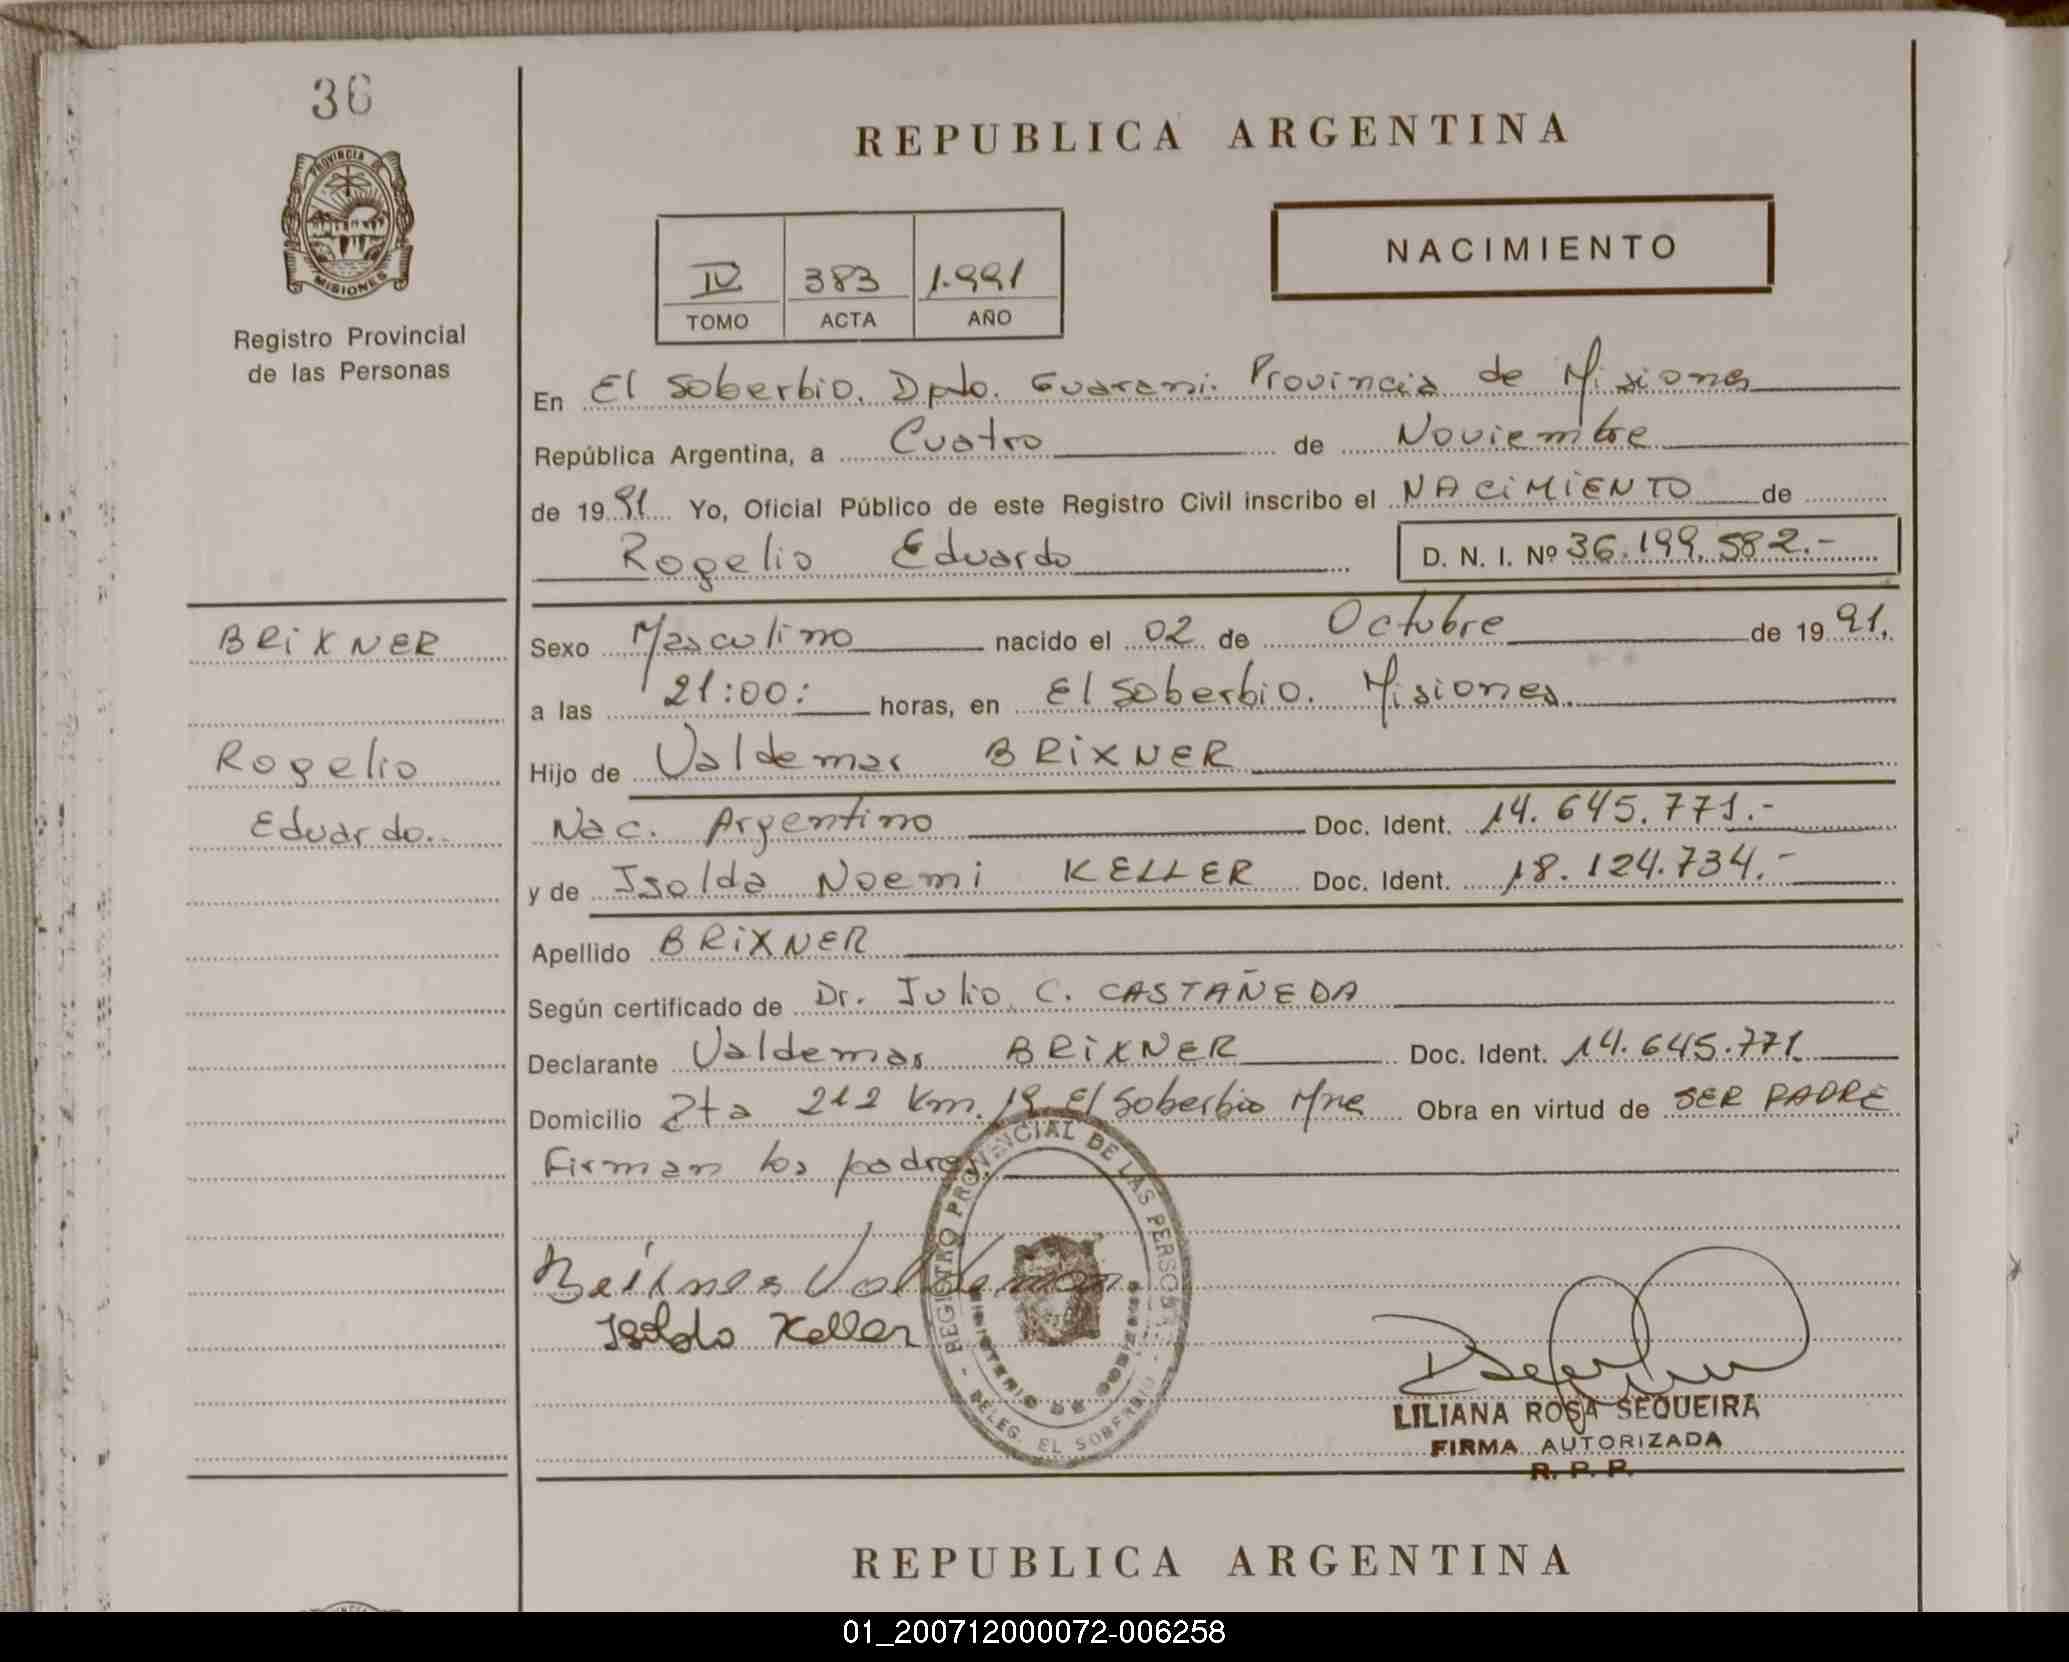 36
PROVINCIA DE
MISIONES
Registro Provincial
de las Personas
BRIXNER
Rogelio
Eduardo.
REPUBLICA ARGENTINA
IV 383 1.991
TOMO ACTA AÑO
NACIMIENTO
En El Soberbio. Dpto. Guarani. Provincia de Misiones
República Argentina, a Cuatro de Noviembre
de 1991 Yo, Oficial Público de este Registro Civil inscribo el NACIMIENTO de
Rogelio Eduardo D. N. I. Nº 36.199.582.-
Sexo Masculino nacido el 02 de Octubre de 1991.
a las 21:00: horas, en El Soberbio. Misiones.
Hijo de Valdemar BRIXNER
Nac. Argentino Doc. Ident. 14.645.771.-
y de Isolda Noemi KELLER Doc. Ident. 18.124.734.-
Apellido BRIXNER
Según certificado de Dr. Julio C. CASTAÑEDA
Declarante Valdemar BRIXNER Doc. Ident. 14.645.771.
Domicilio Rta 212 Km. 19 El Soberbio Mnes Obra en virtud de SER PADRE
Firman los padres.
Brixner Valdemar
Isoldo Keller
REGISTRO PROVINCIAL DE LAS PERSONAS
MINISTERIO DE GOBIERNO
- DELEG. EL SOBERBIO -
LILIANA ROSA SEQUEIRA
FIRMA AUTORIZADA
R. P. P.
REPUBLICA ARGENTINA
01_200712000072-006258